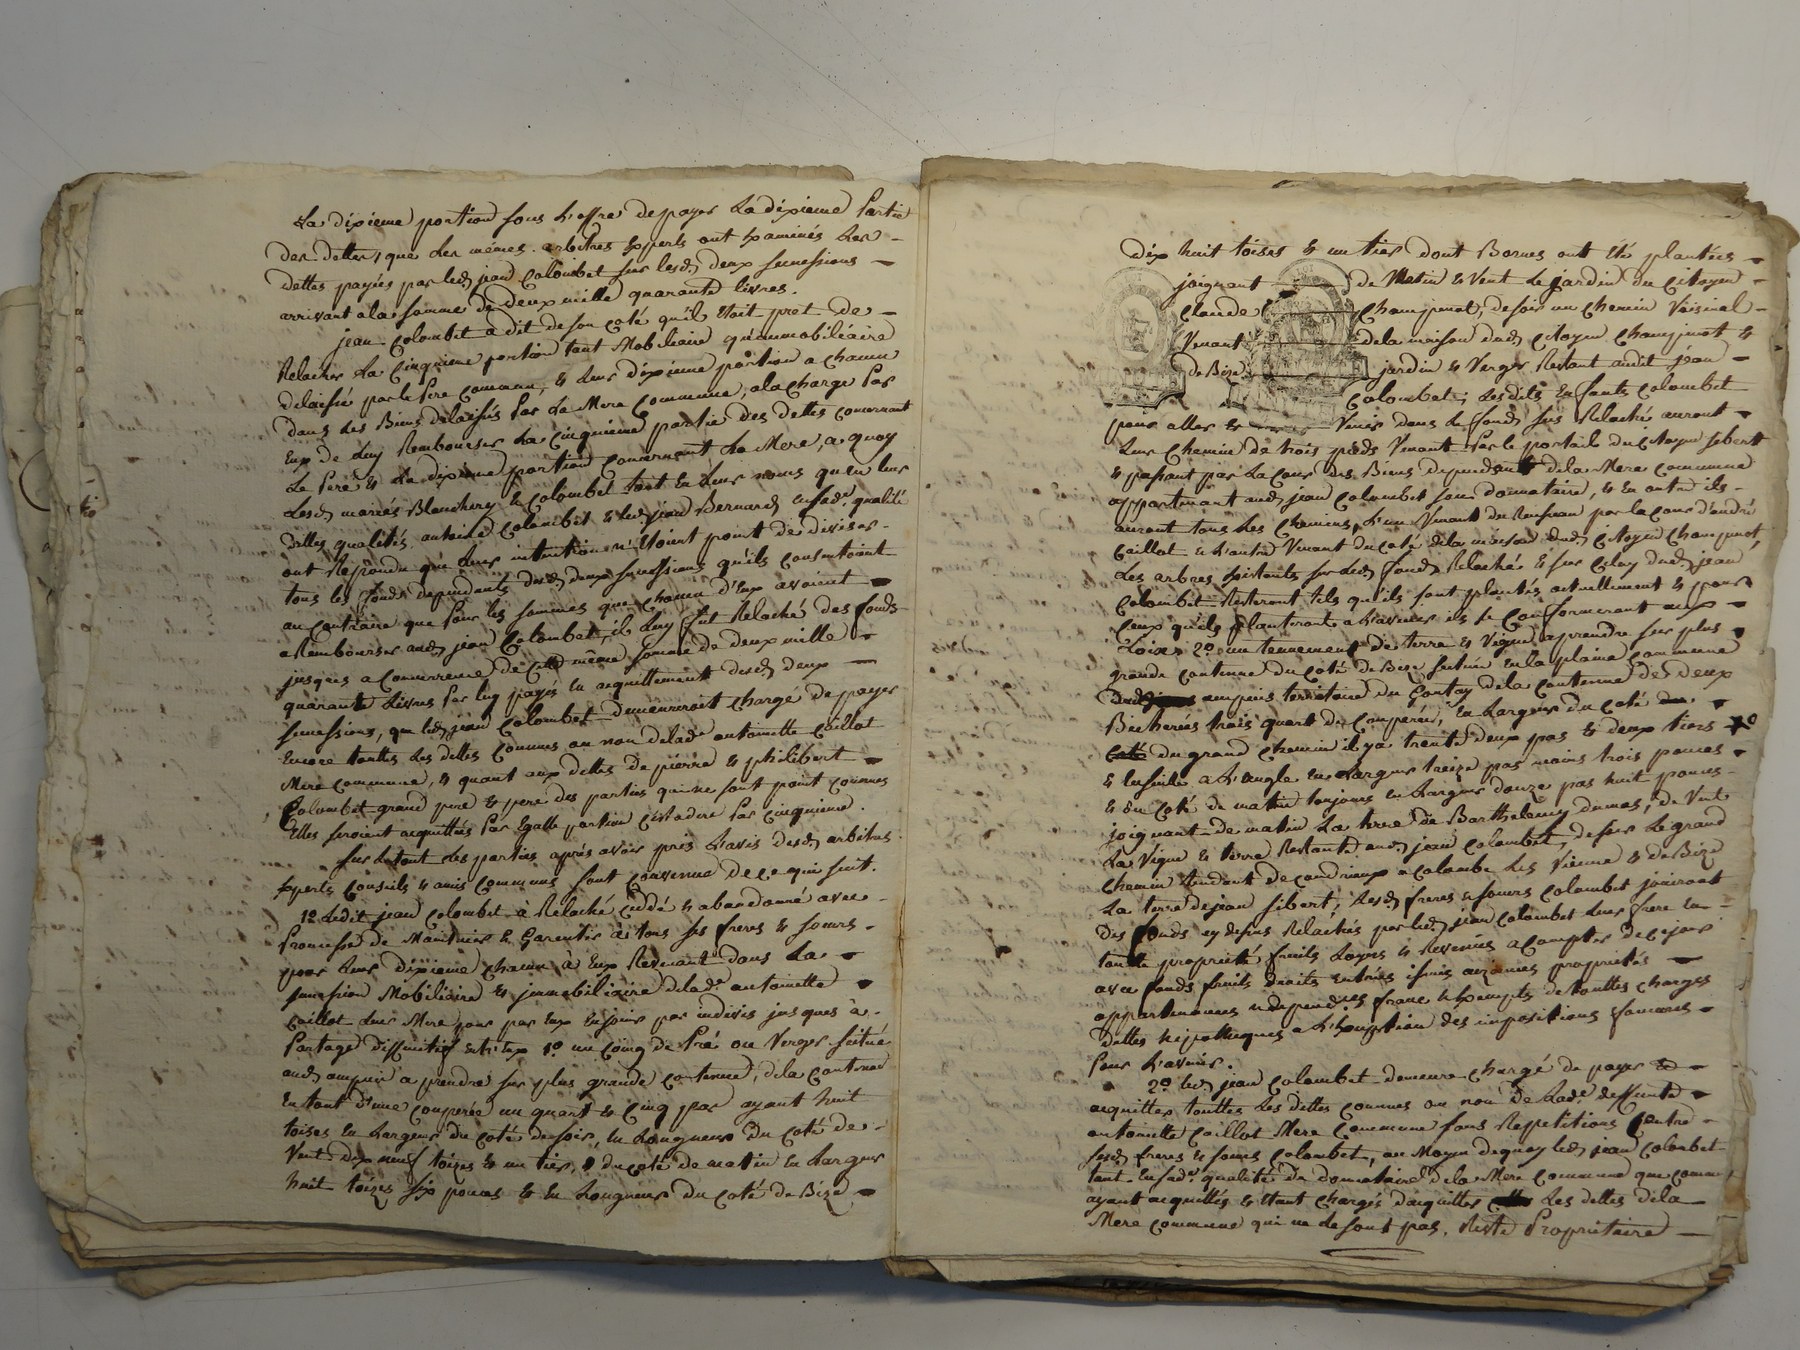 La dixieme portion sous L'offre de payer La dixieme Partie
des dettes, que les mêmes arbitres Experts ont Examinés Les
dettes payées par led. jean Colombet sur lesd. deux successions
arrivant a la somme de deux mille quarante livres.
jean Colombet a dit de son coté qu'il Etoit pret de
Relacher La Cinquieme portion tant Mobiliaire qu'immobiliaire
délaissée par le Pere Commun, & leur dixieme portion a chacun
dans les Biens délaissés Par La Mere Commune, a la charge Par
Eux de Luy Rembourser La Cinquieme partie des dettes concernant
Le Pere & La dixieme portion Concernant La Mere, a quoy
Lesd. mariés Blanchery & Colombet tant En Leur noms qu'en leur
dittes qualités, Colombet & led. jean Bernard En sade. qualité
ont Repondu que Leur intention n'Etoient point de diviser
tous les fonds dependants desd. deux successions qu'ils consentoient
au Contraire que Pour les sommes que chacun d'Eux avoient
a Rembourser aud. jean Colombet, il Luy fut Relaché des fonds
jusques a Concurrence de même somme de deux mille
quarante Livres Par luy payés En acquittement desd. deux
successions, que led. jean Colombet demeureroit chargé de payer
Encore touttes Les dettes Connues ou non de lade. antoinette Caillot
Mere commune, & quant aux dettes de pierre & philibert
Colombet grand pere & pere des parties qui ne sont point connues
Elles seroient acquittées Par Egalle portion C'est a dire Par Cinquieme.
Sur Le tout Les parties après avoir pris L'avis desd. arbitres
Experts Conseils & amis Communs sont Convenus de ce qui suit.
1º Ledit jean Colombet à Relaché Ceddé & abandonné avec
Promesse de Maintenir & Garentir à tous ses freres & soeurs
pour Leur dixieme chacun à Eux Revenant dans La
succession Mobiliaire & immobiliaire de lade. antoinette
Caillot Leur Mere pour par Eux En jouir par indivis jusques à
Partage diffinitif Entr'Eux 1º un Coing de Pré ou Verger scitué
aud. ampuis a prendre sur plus grande contenue, de la contenue
En tout d'une couperée un quart & Cinq pas ayant huit
toises En Largeur du coté de soir, En Longueur du Coté de
Vent dix neuf toizes & un tier, & du coté de matin En Largeur
huit toizes six pouces & En Longueur du Coté de Bize
dix huit toises & un tier dont Bornes ont Eté plantées
joignant de Matin & Vent Le jardin du Citoyen
Claude Champinot, de soir un chemin Voisinal
Venant de la maison dud. Citoyen Champinot &
de Bize jardin & Verger Restant audit jean
Colombet; Lesdits Enfants Colombet
pour aller & Venir dans Le fond sus Relaché auront
Leur Chemin de trois pieds Venant Par le portail du Citoyen Sibert
& passant par La Cour des Biens dependants de la Mere Commune
appartenant aud. jean Colombet son donnataire, & En outre ils
auront tous les Chemins, L'un Venant du Ruisseau par la cour d'andré
Caillot & L'autre Venant du coté de la maison dud. Citoyen Champinot,
Les arbres Existants sur led. fond Relaché & sur Celuy dud. jean
Colombet Resteront tels qu'ils sont plantés actuellement & pour
Ceux qu'ils planteront a L'avenir ils se Conformeront aux
Loix, 2º un tennement de terre & Vigne a prendre sur plus
grande contenue du Coté de Bize scitué En la plaine commune
ampuis territoire du Gontay de la contenue de deux
Bicherées trois quart de Couperée, En Largeur du coté
du grand chemin il y a trente deux pas & deux tiers
& Ensuite a L'angle En Largeur treize pas moins trois pouces
& du Coté de matin toujours En Largeur douze pas huit pouces
joignant de matin La terre de Barthelemy dumas, de Vent
La Vigne & terre Restante aud. jean Colombet, de soir Le grand
Chemin tendant de Condrieux a Colombe Les Vienne & de Bize
La terre de jean Sibert; Lesd. freres & soeurs Colombet jouiront
Des fonds cy dessus Relachés par led. jean Colombet Leur frere En
toutte propriété fruits Loyers & Revenus a compter de ce jour
avec fonds fruits droits Entrées issues aizances proprietés
appartenances & dependces. franc & Exempts de touttes charges
Dettes hipotheques a L'Exception des impositions foncieres
Pour L'avenir.
2º led. jean Colombet demeure chargé de payer &
acquitter touttes Les dettes Connues ou non de Lade. deffunte
antoinette Caillot Mere Commune sans Repetitions Contre
sesd. freres & soeurs Colombet, au Moyen de quoy led. jean Colombet
tant En sade. qualité de donnataire de la Mere Commune que comme
ayant acquittés & Etant chargés d'acquitter Les dettes de la
Mere Commune qui ne Le sont pas, Reste Propriétaire